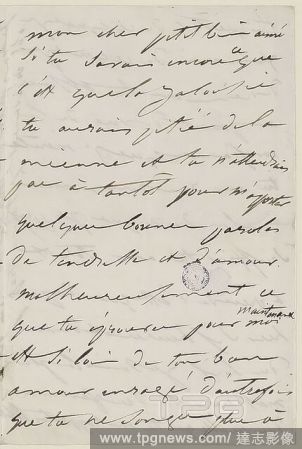 mon cher petit bien aimé
Si tu savais encore ce que
c'est que la jalousie
tu aurais pitié de la
mienne et tu n'attendrais
pas à tantôt pour m'apporter
quelques bonnes paroles
de tendresse et d'amour.
malheureusement ce
que tu éprouves pour moi maintenant
est si loin de ton bon
amour enragé d'autrefois
que tu ne songes pas à
TPG
www.tpgnews.com/達志影像